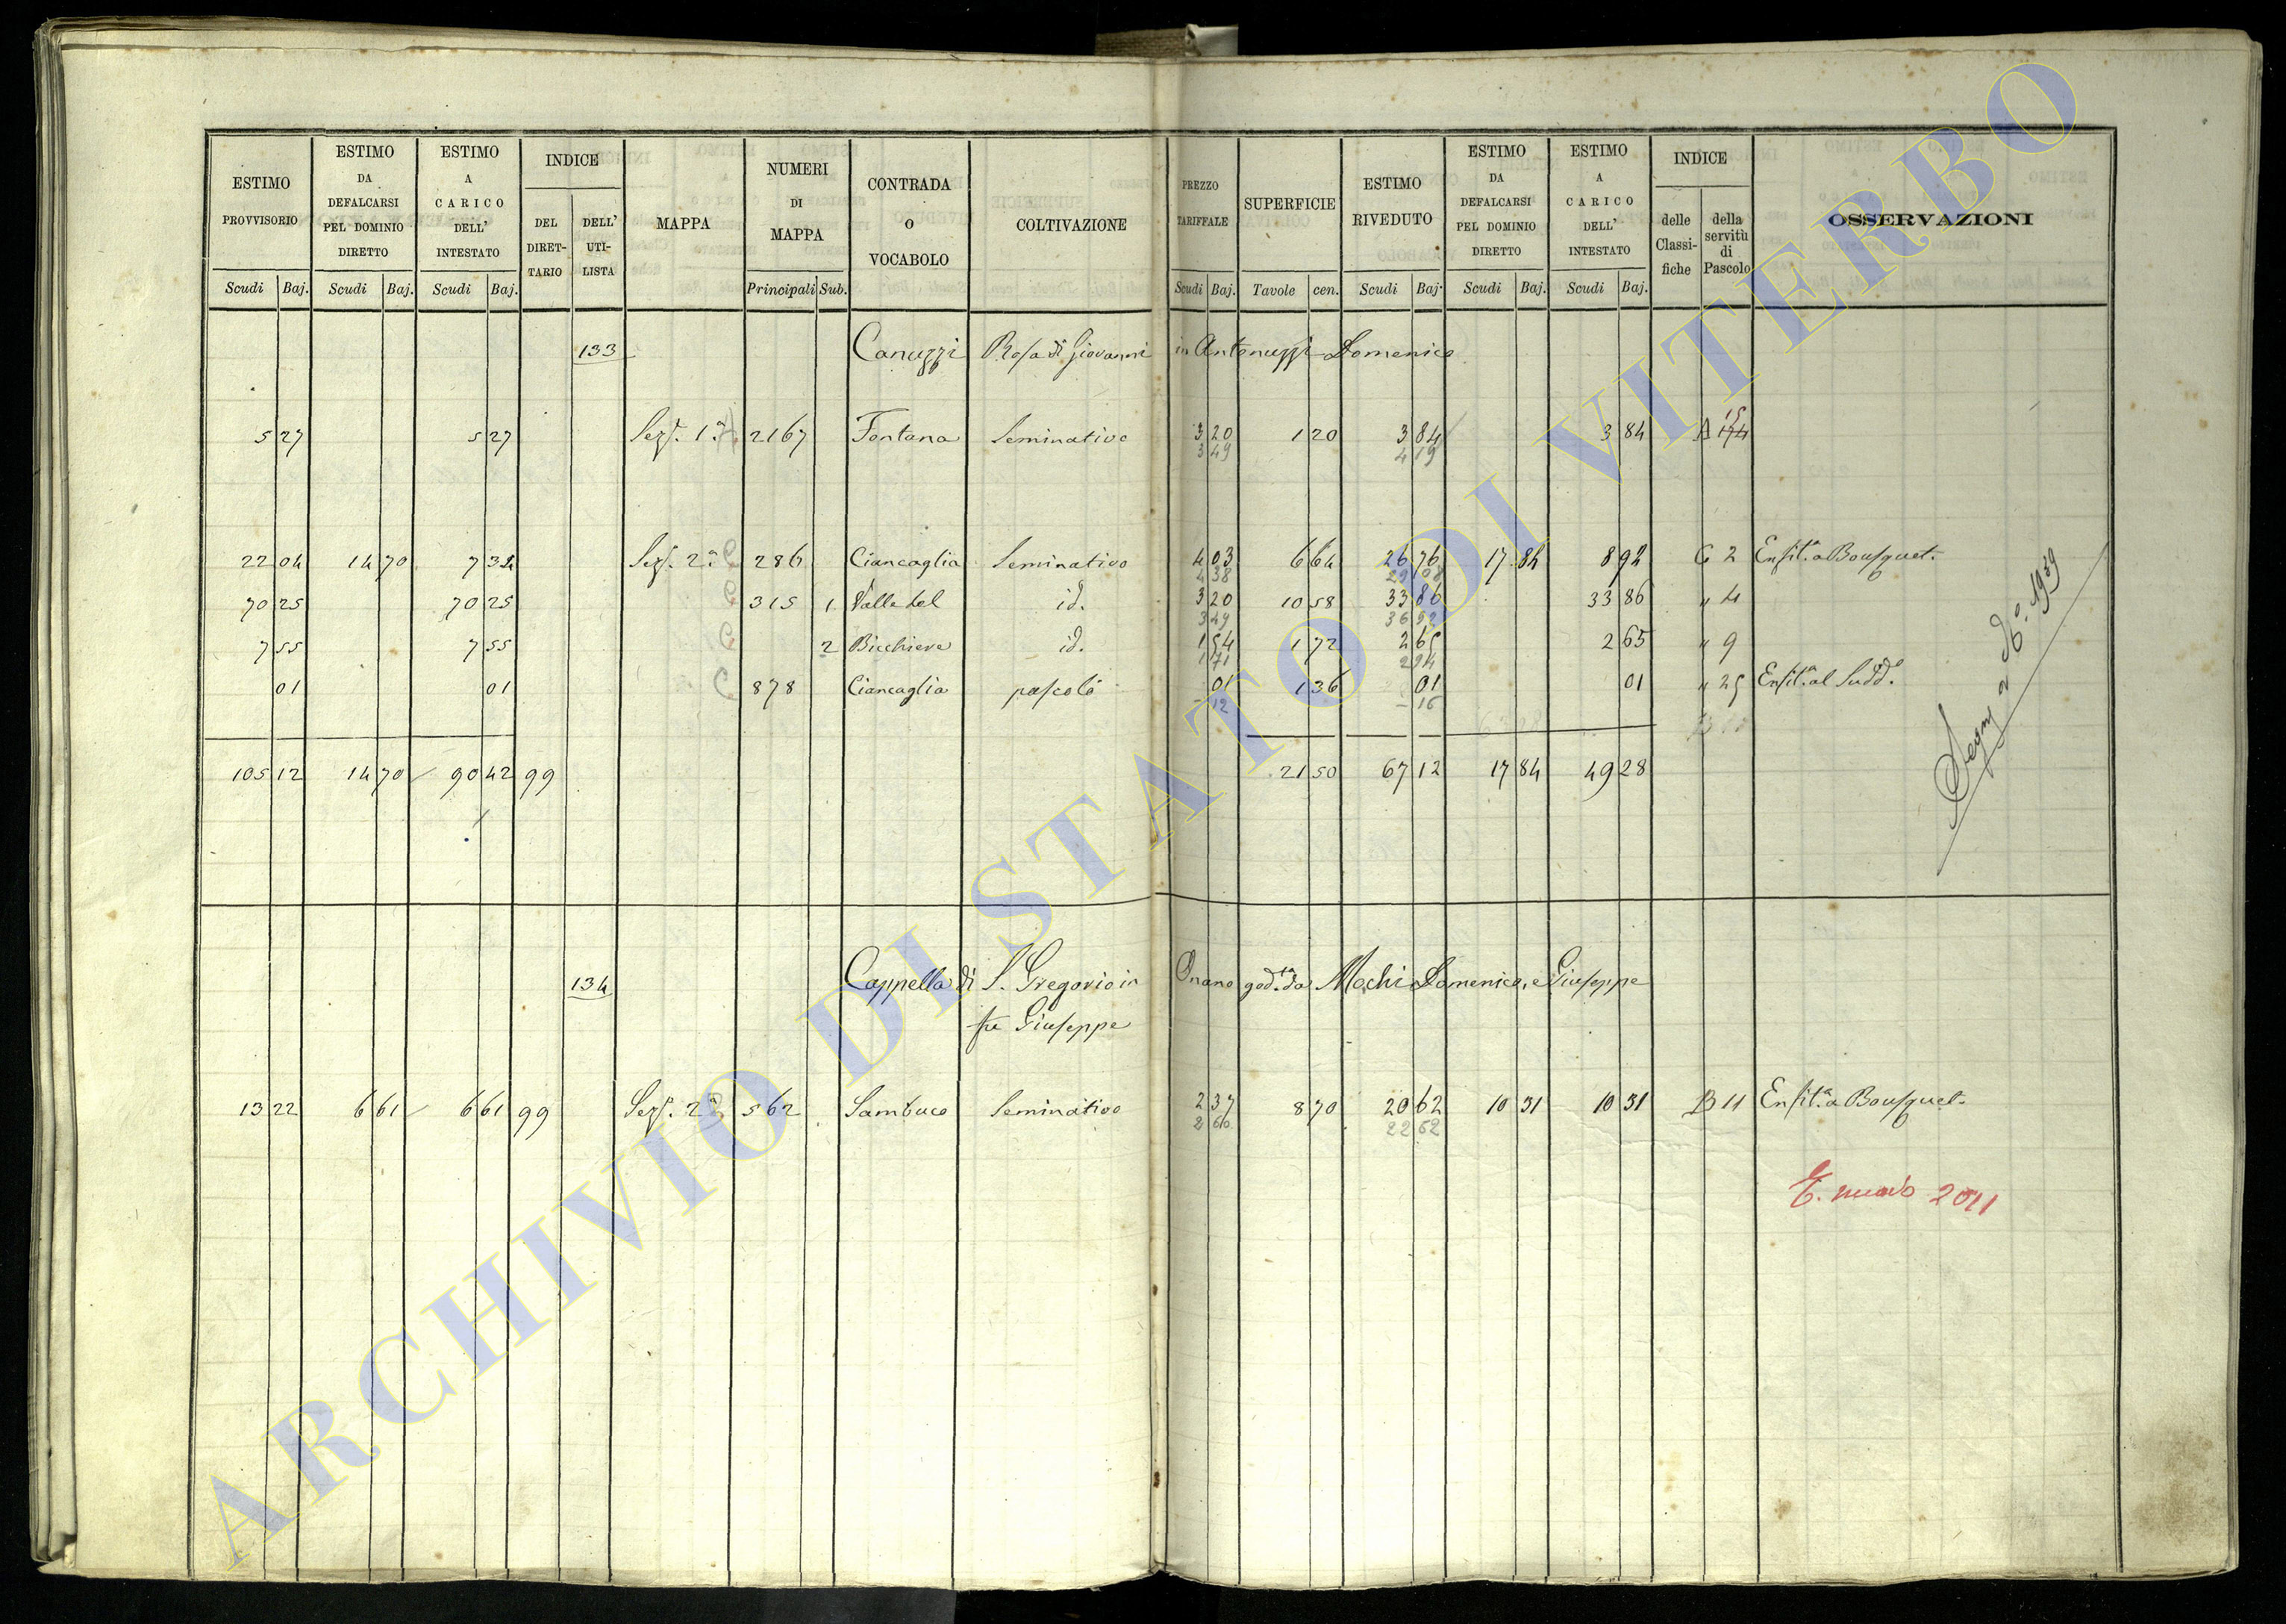 ESTIMO PROVVISORIO Scudi Baj.
ESTIMO DA DEFALCARSI PEL DOMINIO DIRETTO Scudi Baj.
ESTIMO A CARICO DELL' INTESTATO Scudi Baj.
INDICE DEL DIRET-TARIO DELL' UTI-LISTA
MAPPA
NUMERI DI MAPPA Principali Sub.
CONTRADA O VOCABOLO
COLTIVAZIONE
PREZZO TARIFFALE Scudi Baj.
SUPERFICIE Tavole cen.
ESTIMO RIVEDUTO Scudi Baj.
ESTIMO DA DEFALCARSI PEL DOMINIO DIRETTO Scudi Baj.
ESTIMO A CARICO DELL' INTESTATO Scudi Baj.
INDICE delle Classi-fiche della servitù di Pascolo
OSSERVAZIONI
133 Canuzzi Rosa di Giovanni in Antonuzzi Domenico
5 27 5 27 Seze. 1a A 2167 Fontana Seminativo 3 20 1 20 3 84 3 84 A 15 174
3 49 4 19
22 04 14 70 7 34 Seze. 2a C 286 Ciancaglia Seminativo 4 03 6 64 26 76 17 84 8 92 C 2 Enfita. a Bousquet.
4 38 29 08
70 25 70 25 C 315 1 Valle del id. 3 20 10 58 33 86 33 86 " 4
3 49 36 92
7 55 7 55 C 2 Bicchiere id. 1 54 1 72 2 65 2 65 " 9
1 71 2 94
01 01 C 878 Ciancaglia pascolo 01 1 36 01 01 " 25 Enfita. al Sudd.o
12 16
105 12 14 70 90 42 99 21 50 67 12 17 84 49 28
Segue a d.o. 1939
134 Cappella di S. Gregorio in Onano god.ta da Mochi Domenico, e Giuseppe
fu Giuseppe
13 22 6 61 6 61 99 Seze. 2a B 562 Sambuco Seminativo 2 37 8 70 20 62 10 31 10 31 B 11 Enfita. a Bousquet.
2 60 22 62
2011
ARCHIVIO DI STATO DI VITERBO